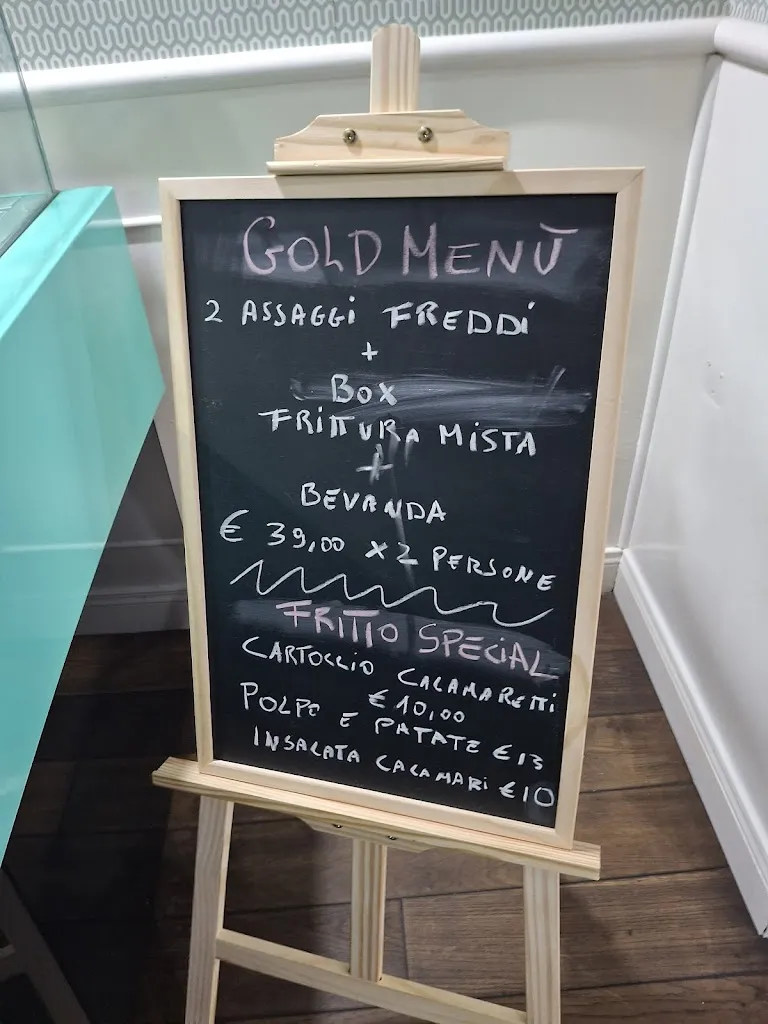 GOLD MENÙ
2 ASSAGGI FREDDI
+
BOX
FRITTURA MISTA
+
BEVANDA
€ 39,00 x 2 PERSONE
FRITTO SPECIAL
CARTOCCIO CALAMARETTI
€ 10,00
POLPO E PATATE € 13
INSALATA CALAMARI € 10